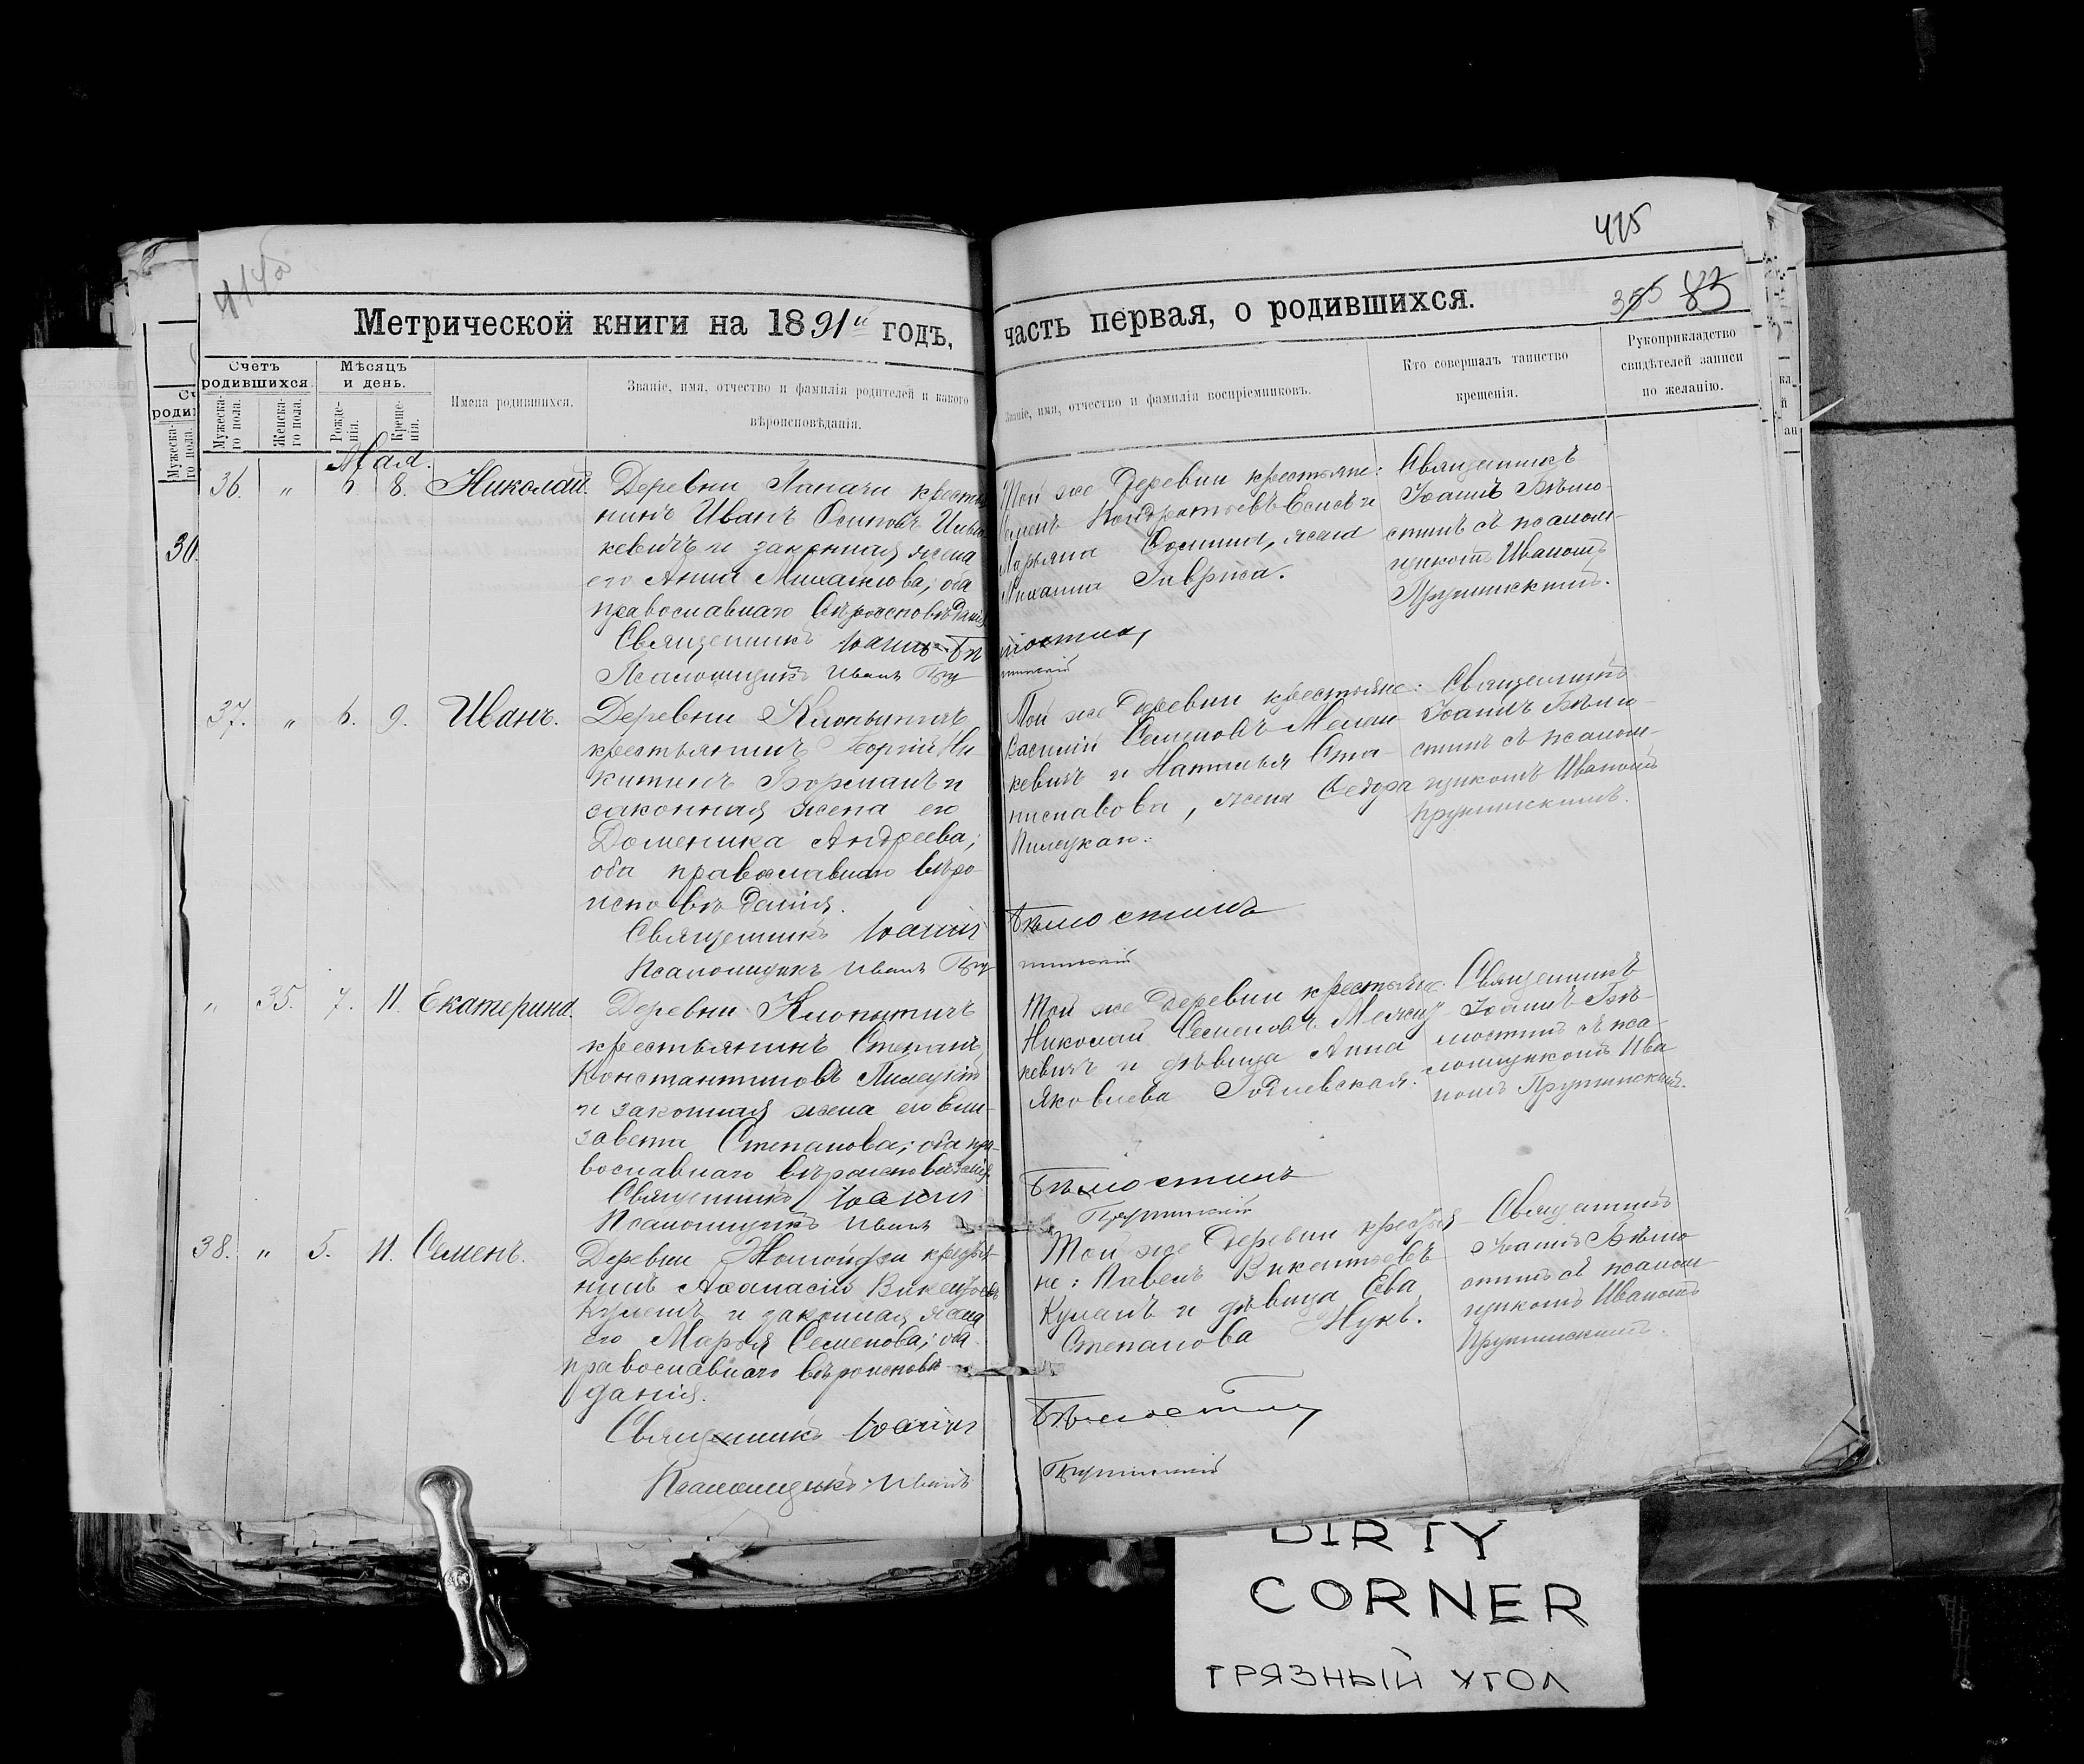 415
355 83
Метрической книги на 1891й годъ, часть первая, о родившихся.
Счетъ родившихся.
Мужеска-го пола.
Женска-го пола.
Мѣсяцъ и день.
Рожде-нія.
Креще-нія.
Имена родившихся.
Званіе, имя, отчество и фамилія родителей и какого
вѣроисповѣданія.
Званіе, имя, отчество и фамилія воспріемниковъ.
Кто совершалъ таинство
крещенія.
Рукоприкладство
свидѣтелей записи
по желанію.
Мая.
36. " 6. 8. Николай.
Деревни крестья
нинъ Иванъ Осиповъ
кевичъ и законная жена
его Анна Михайлова; оба
православнаго вѣроисповѣданія
Священникъ Іоаннъ Бѣ
Псаломщикъ Иванъ
Той же деревни крестьяне:
Семенъ Кондратьевъ и
Марьяна Осипова, жена
Михаила
лостинъ
Священникъ
Іоаннъ Бѣло-
стинъ съ псалом-
щикомъ Иваномъ
30.
37. " 6. 9. Иванъ.
Деревни
крестьянинъ Георгій Ни
китинъ и
законная жена его
Доменика Андреева;
оба православнаго вѣро
исповѣданія.
Священникъ Іоаннъ
Псаломщикъ Иванъ
Той же деревни крестьяне:
Василій Семеновъ
кевичъ и Наталья Ста-
ниславова, жена Ѳедора
Бѣлостинъ
Священникъ
Іоаннъ Бѣло-
стинъ съ псалом-
щикомъ Иваномъ
" 35. 7. 11. Екатерина.
Деревни
крестьянинъ Степанъ
Константиновъ
и законная жена его Ели-
завета Степанова; оба пра-
вославнаго вѣроисповѣданія.
Священникъ Іоаннъ
Псаломщикъ Иванъ
Той же деревни крестьяне:
Николай Семеновъ
кевичъ и дѣвица Анна
Яковлева
Бѣлостинъ
Священникъ
Іоаннъ Бѣ-
лостинъ съ пса-
ломщикомъ Ива
номъ
38. " 5. 11. Семенъ.
Деревни крестья-
нинъ Аѳанасій Викентьевъ
и законная жена
его Марья Семенова; оба
православнаго вѣроисповѣ-
данія.
Священникъ Іоаннъ
Псаломщикъ Иванъ
Той же деревни крестья-
не: Павелъ Викентьевъ
и дѣвица Ева
Степанова
Бѣлостинъ
Священникъ
Іоаннъ Бѣло
стинъ съ псалом
щикомъ Иваномъ
DIRTY
CORNER
ГРЯЗНЫЙ УГОЛ